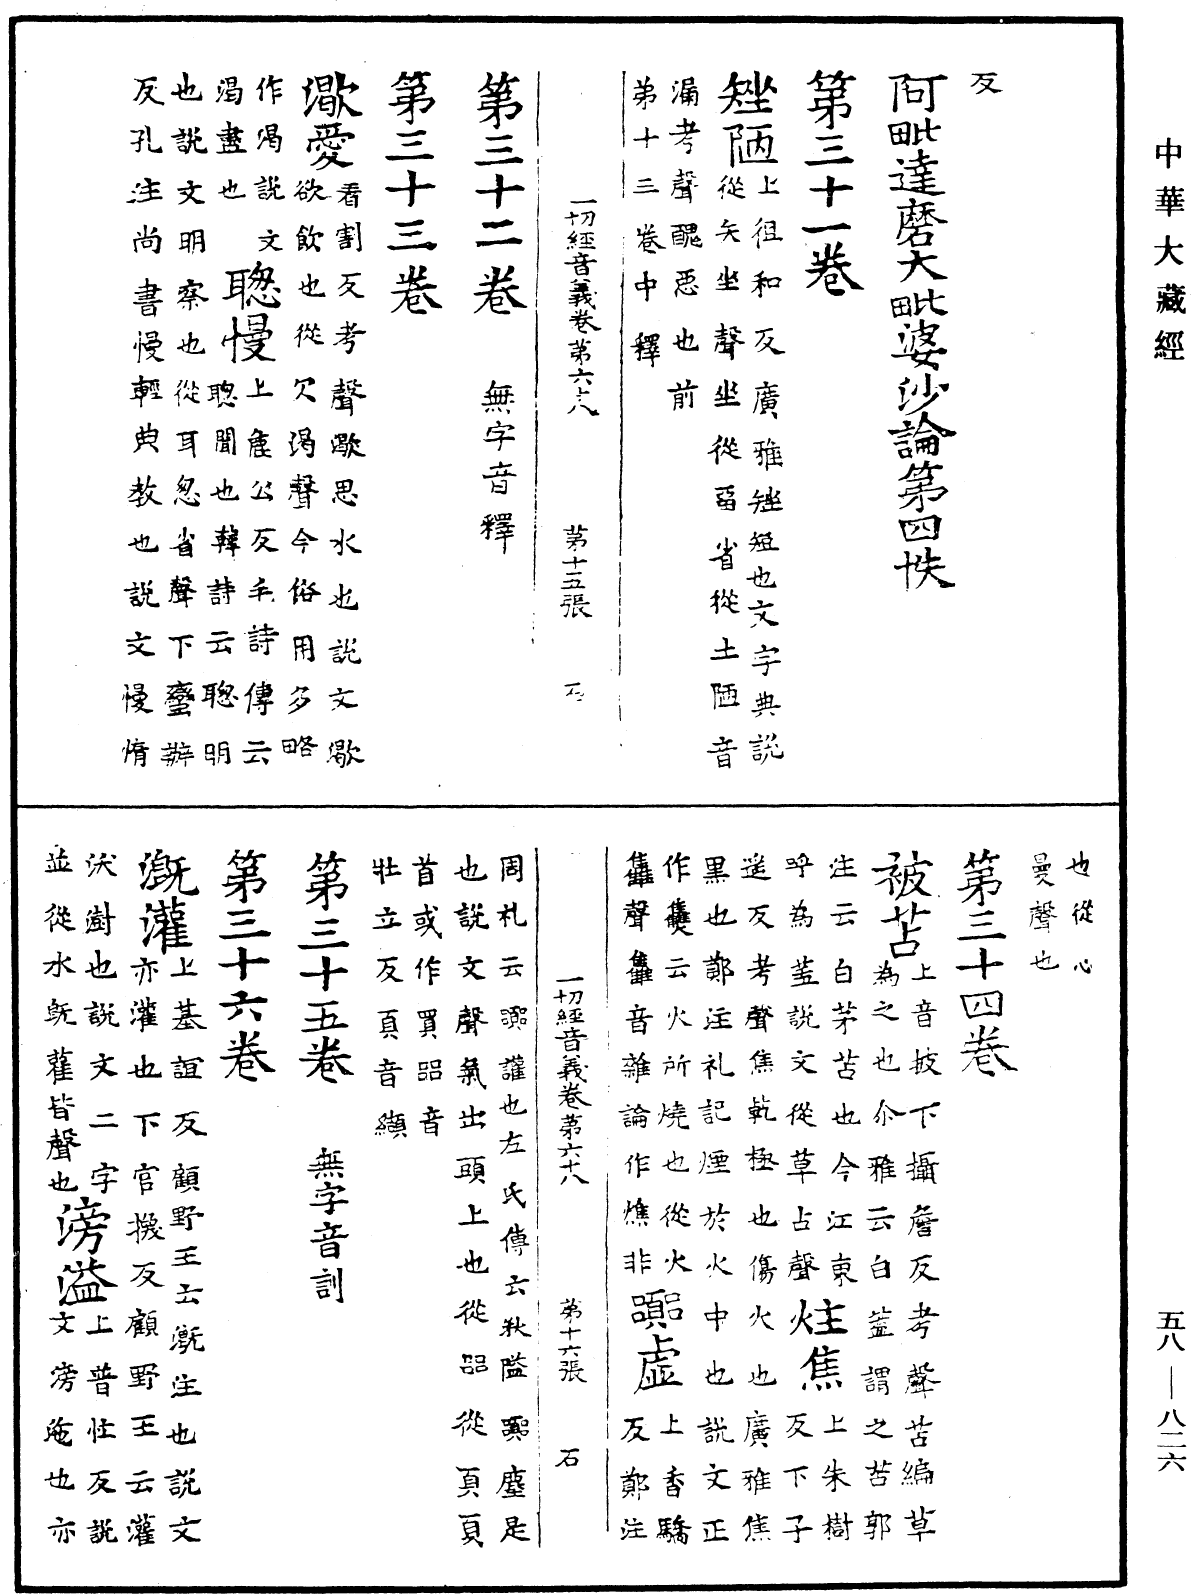 中華大藏經
反
阿毗達磨大毗婆沙論第四帙
第三十一卷
矬陋上徂和反廣雅矬短也文字典說
從矢坐聲坐從畱省從土陋音
漏考聲醜惡也前
第十三卷中釋
一切經音義卷第六十八 第十五張 石
第三十二卷 無字音釋
第三十三卷
㵣愛看割反考聲㵣思水也說文㵣
欲飲也從欠渴聲今俗用多略
作渴說文
渴盡也聰慢上麁公反毛詩傳云
聰聞也韓詩云聰明
也說文明察也從耳怱省聲下蠻辦
反孔注尚書慢輕典教也說文慢惰
也從心
曼聲也
第三十四卷
被苫上音披下攝詹反考聲苫編草
為之也尒雅云白蓋謂之苫郭
注云白茅苫也今江東
呼為蓋說文從草占聲炷焦上朱樹
反下子
遥反考聲焦乾極也傷火也廣雅焦
黑也鄭注礼記煙於火中也說文正
作𤓪云火所燒也從火
雥聲雥音雜論作燋非嚻虛上香驕
反鄭注
周礼云嚻讙也左氏傳云湫隘嚻塵是
也說文聲氣出頭上也從㗊從頁頁
首或作買㗊音
壯立反頁音纈
一切經音義卷第六十八 第十六張 石
第三十五卷 無字音訓
第三十六卷
溉灌上基誼反顧野王云溉注也說文
亦灌也下官換反顧野王云灌
沃澍也說文二字
並從水旣雚皆聲也滂溢上普忙反說
文滂沲也亦
五八—八二六